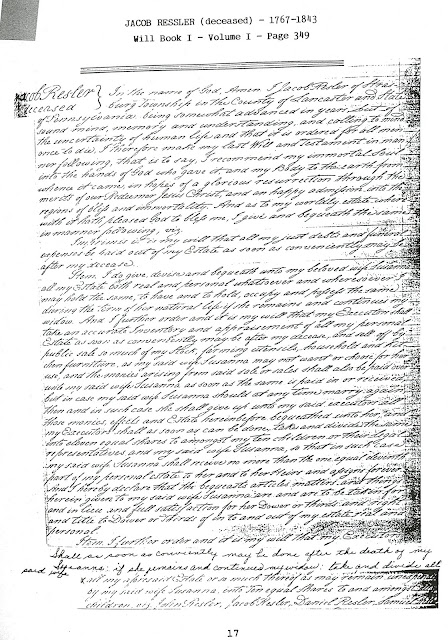 JACOB RESSLER (deceased) - 1767-1843
Will Book I - Volume I - Page 349
Jacob Resler } In the name of God, Amen I Jacob Resler of Stras
deceased burg Township in the County of Lancaster and State
of Pennsylvania being somewhat advanced in years, but of
sound mind, memory and understanding, and calling to mind
the uncertainty of human life and that it is ordered for all men
once to die, I therefore make my last Will and Testament in man
ner following, that is to say, I recommend my immortal Soul
into the hands of God who gave it and my Body to the earth from
whence it came, in hopes of a glorious resurrection through the
merits of our Redeemer Jesus Christ, and an happy admission into the
regions of bliss and immortality. And as to my worldly estate where
with it hath pleased God to bless me, I give and bequeath the same
in manner following, viz
Imprimes it is my will that all my just debts and funeral
expenses be paid out of my Estate as soon as conveniently may be
after my decease
Item, I do give, devise and bequeath unto my beloved wife Susanna
all my Estate both real and personal whatsoever and wheresoever
may hold the same, to have and to hold, occupy and possess the same
during the term of her natural life if she remains and continues my
widow. And I further order and it is my will that my Executors shall
take an accurate Inventory and appraisement of all my personal
Estate as soon as conveniently may be after my decease, and sell off by
public sale so much of my Stock, farming utensils, household and kit
chen furniture, as my said wife Susanna may not want or chose for her
use, and the monies arising from said sale or sales shall also be paid over
unto my said wife Susanna as soon as the same is paid in or received
but in case my said wife Susanna should at any time marry again
then and in such case she shall give up unto my said executors all
those monies, effects and Estate hereinbefore bequeathed unto her, and
my Executors shall as soon as can be done, take and divide the same
into eleven equal shares to amongst my ten children or their legal
representatives and my said wife Susanna, so that in such Case
my said wife Susanna shall receive no more than the one equal eleventh
part of my personal Estate to her and to her Heirs and assigns forever
And I hereby declare that the bequests articles matters and things
herein given to my said wife Susanna are and are to be taken for
and in lieu and full satisfaction for her Dower or thirds and
and title to Dower or thirds of in to and out of my estate real and
personal.
Item I further order and it is my will that my Executors
Shall as soon as conviently may be done after the death of my
said wife Susanna: if she remains and continues my widow: take and divide all
my aforesaid Estate or so much thereof as may remain unexpended
by my said wife Susanna, into ten equal shares to and amongst
children, viz John Resler, Jacob Resler, Daniel Resler, Samuel
17